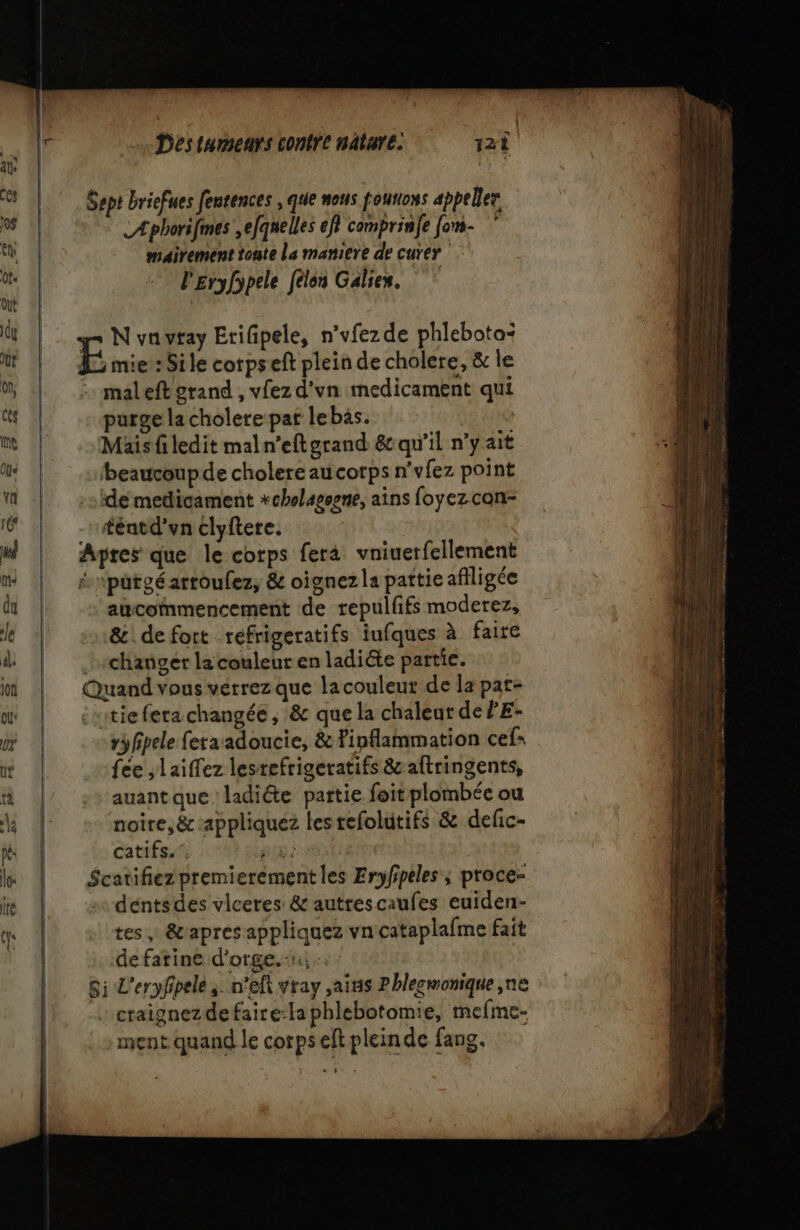 Des tumeurs contre nature. 121
Sept briefues ſentences, que nous pouuons appeller
Aphoriſmes, eſquelles eſt comprinſe ſom-
mairement toute la maniere de curer
l'Eryſypele ſelon Galien.
EN vn vray Eriſipele, n'vſez de phleboto-
mie : Si le corps eſt plein de cholere, & le
mal eſt grand, vſez d'vn medicament qui
purge la cholere par le bas.
Mais ſi ledit mal n'eſt grand & qu'il n'y ait
beaucoup de cholere au corps n'vſez point
de medicament *cholagogne, ains ſoyez con-
tent d'vn clyſtere.
Apres que le corps ſera vniuerſellement
purgé arrouſez, & oignez la partie affligée
au commencement de repulſifs moderez,
& de fort refrigeratifs iuſques à faire
changer la couleur en ladicte partie.
Quand vous verrez que la couleur de la par-
tie ſera changée, & que la chaleur de l'E-
ryſipele ſera adoucie, & l'inflammation ceſ-
ſée, laiſſez les refrigeratifs & aſtringents,
auant que ladicte partie ſoit plombée ou
noire, & appliquez les reſolutifs & deſic-
catifs.
Scarifiez premierement les Eryſipeles, proce-
dents des vlceres & autres cauſes euiden-
tes, & apres appliquez vn cataplaſme fait
de farine d'orge.
Si L'eryſipele, n'eſt vray, ains Phlegmonique, ne
craignez de faire la phlebotomie, meſme-
ment quand le corps eſt plein de ſang.